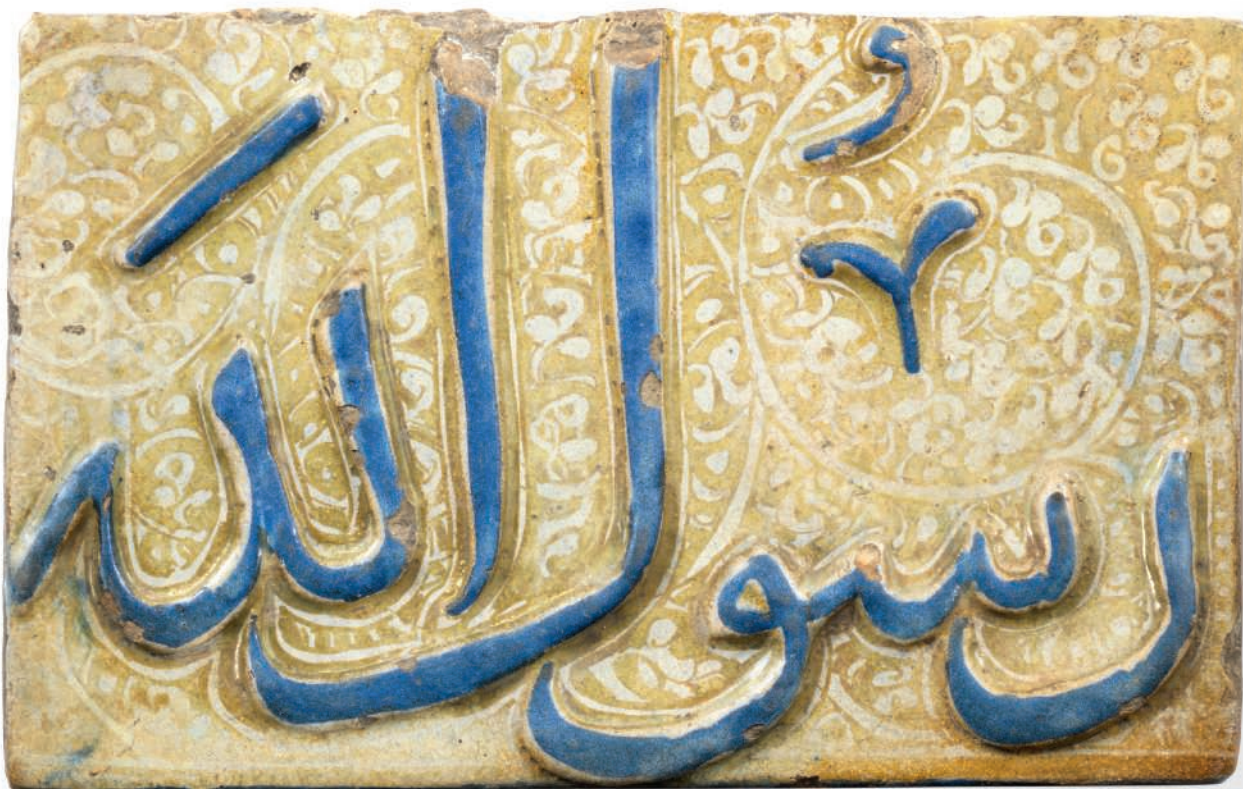 رسول الله